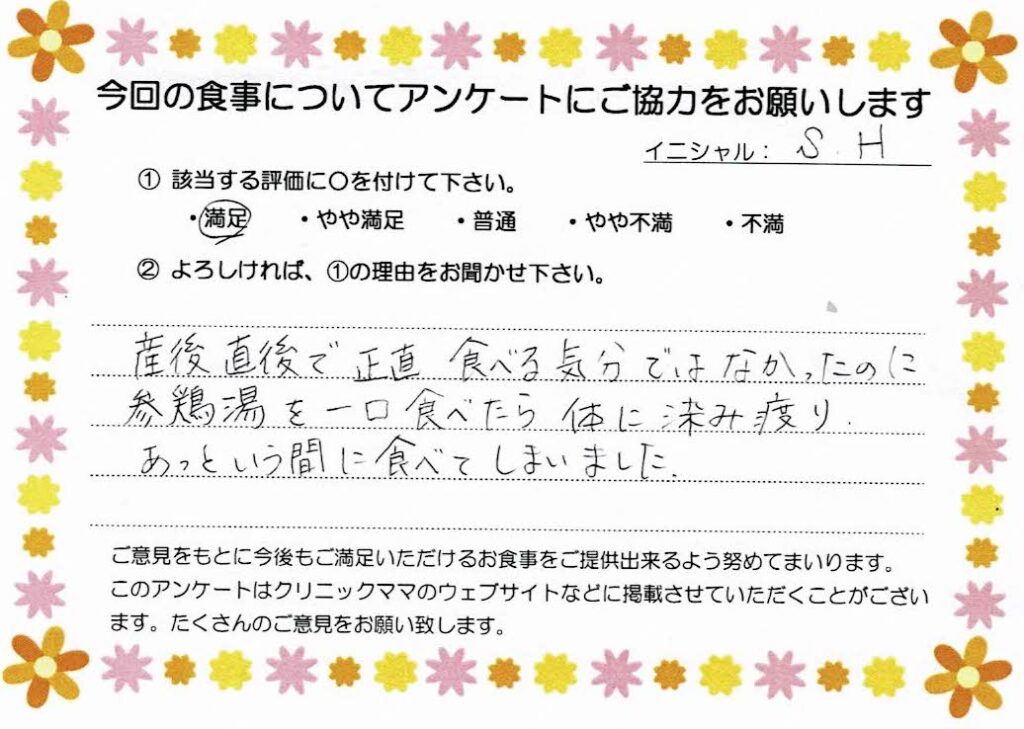 今回の食事についてアンケートにご協力をお願いします
イニシャル： S.H
① 該当する評価に○を付けて下さい。
・満足 ・やや満足 ・普通 ・やや不満 ・不満
② よろしければ、①の理由をお聞かせ下さい。
産後直後で正直 食べる気分ではなかったのに
参鶏湯を一口食べたら 体に染み疲り.
あっという間に食べてしまいました.
ご意見をもとに今後もご満足いただけるお食事をご提供出来るよう努めてまいります。
このアンケートはクリニックママのウェブサイトなどに掲載させていただくことがござい
ます。たくさんのご意見をお願い致します。